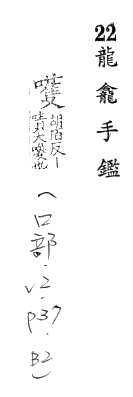 22龍龕手鑑
胡伯反丨
嘖大喚也
(口部.v2.p37.B2)